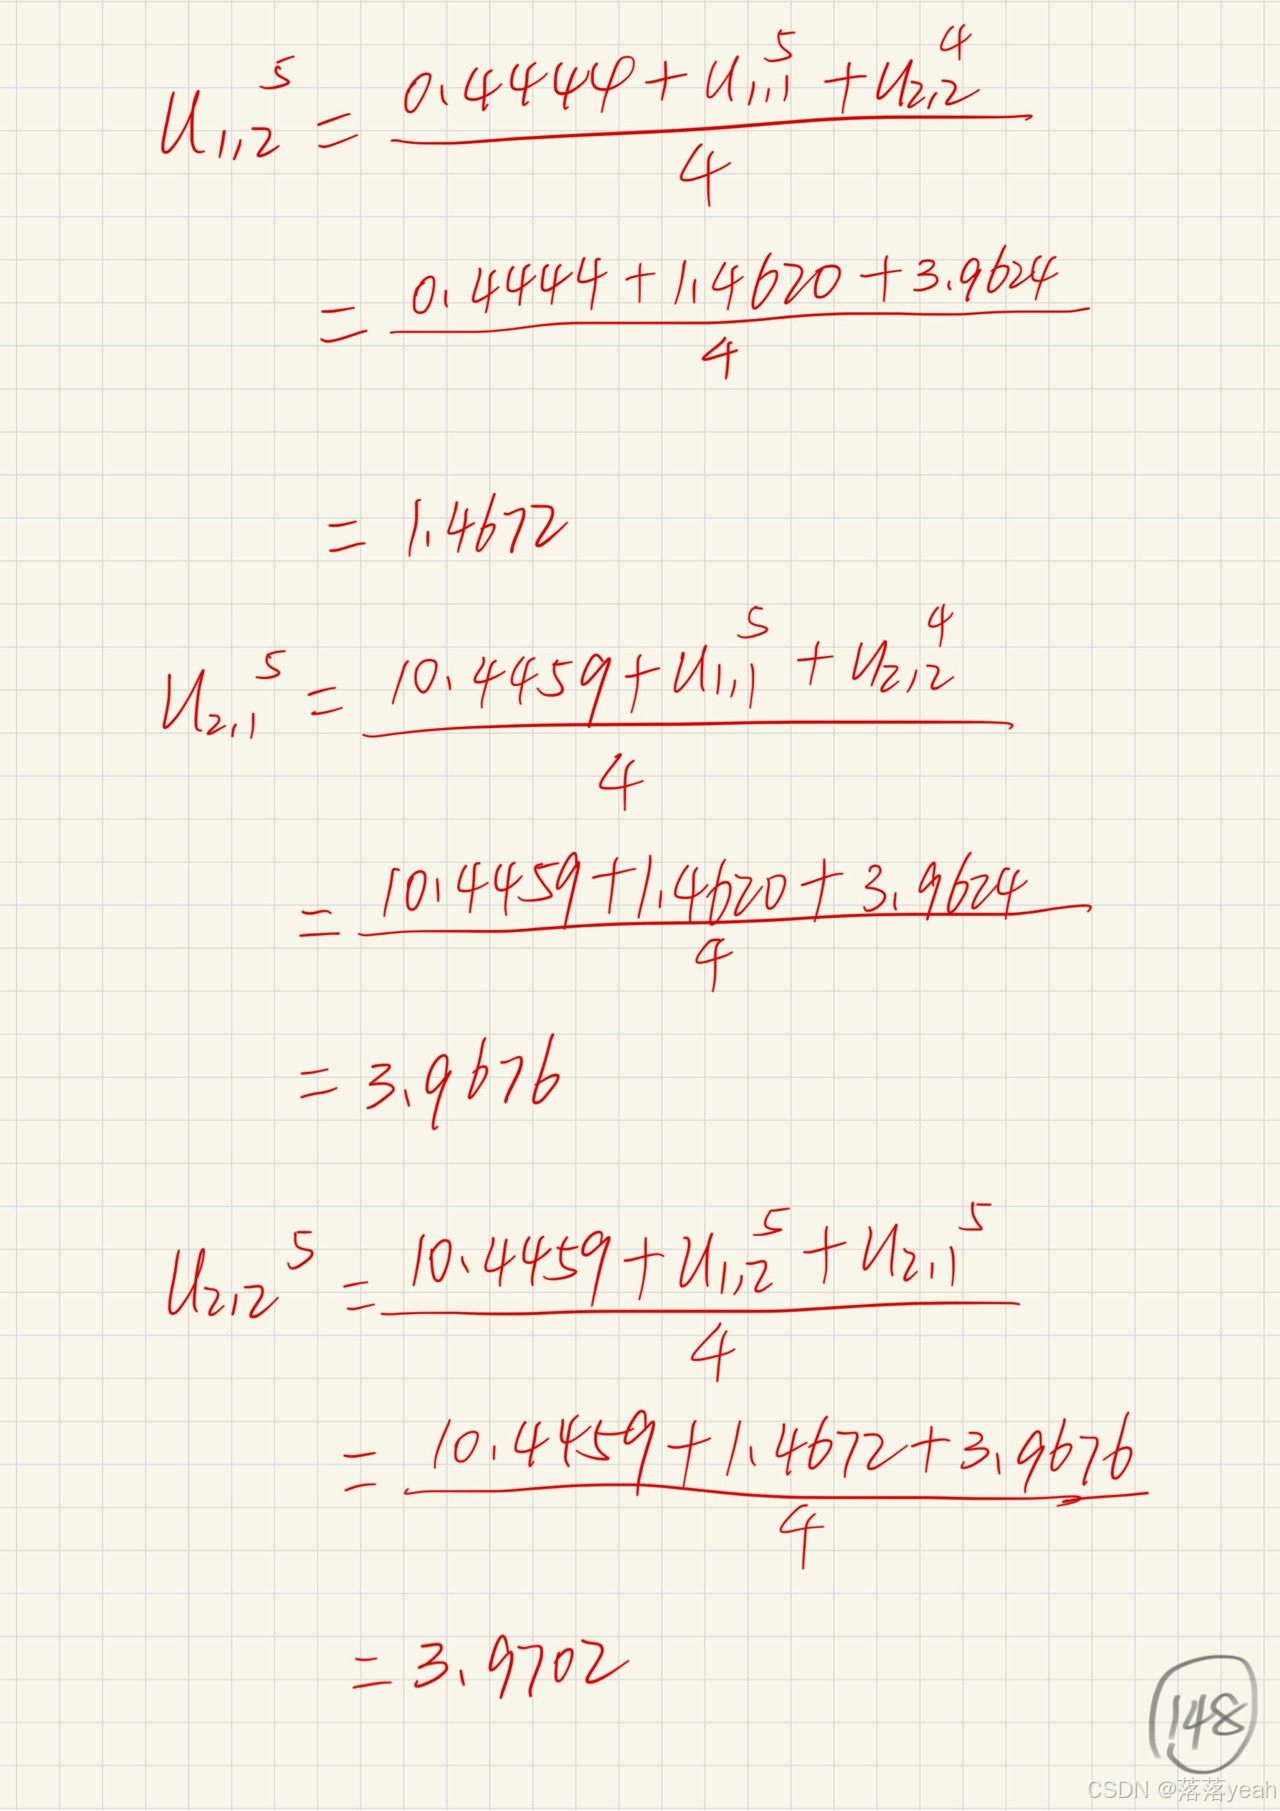 u₁,₂⁵ = (0.4444 + u₁,₁⁵ + u₂,₂⁴) / 4
= (0.4444 + 1.4620 + 3.9624) / 4
= 1.4672
u₂,₁⁵ = (10.4459 + u₁,₁⁵ + u₂,₂⁴) / 4
= (10.4459 + 1.4620 + 3.9624) / 4
= 3.9676
u₂,₂⁵ = (10.4459 + u₁,₂⁵ + u₂,₁⁵) / 4
= (10.4459 + 1.4672 + 3.9676) / 4
= 3.9702
148
CSDN @落落yeah